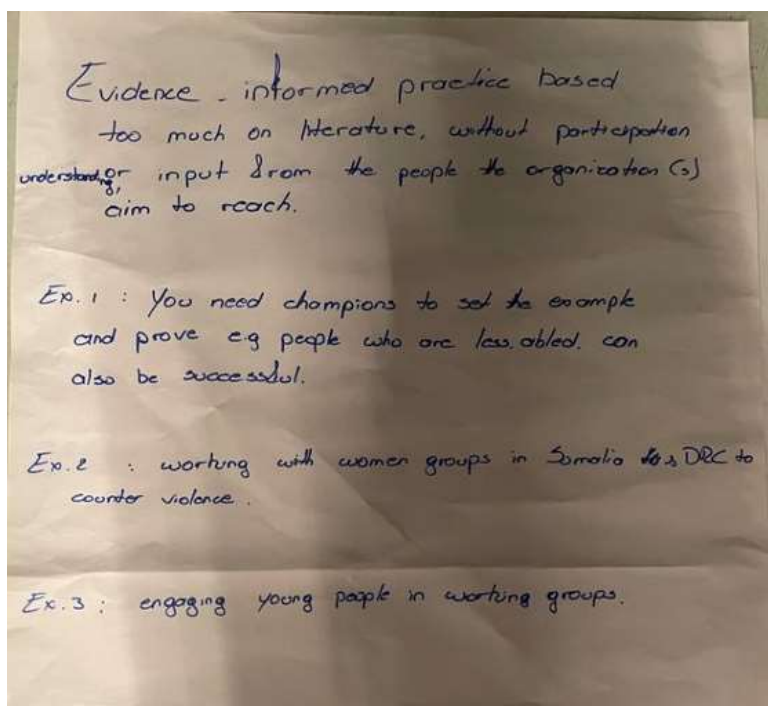 Evidence - informed practice based
too much on literature, without participation
understanding, or input from the people the organization(s)
aim to reach.
Ex. 1 : You need champions to set the example
and prove e.g people who are less. abled. can
also be successful.
Ex. 2 : working with women groups in Somalia DRC to
counter violence.
Ex. 3 : engaging young people in working groups.